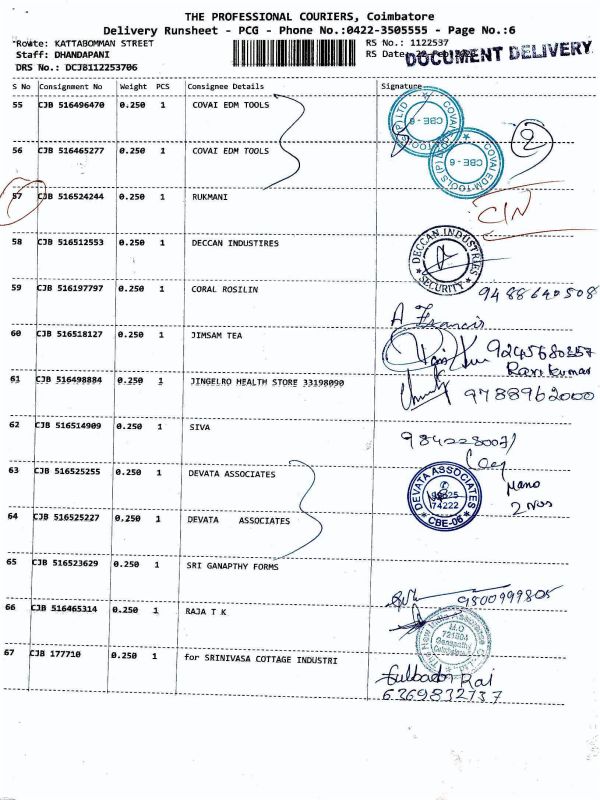 THE PROFESSIONAL COURIERS, Coimbatore
Delivery Runsheet - PCG - Phone No.:0422-3505555 - Page No.:6
*Route: KATTABOMMAN STREET
RS No.: 1122537
Staff: DHANDAPANI
RS Date:
DOCUMENT DELIVERY
DRS No.: DCJ8112253706
S No Consignment No Weight PCS Consignee Details Signature
55 CJB 516496470 0.250 1 COVAI EDM TOOLS
COVAI EDM-TOOLS (P) LTD CBE - 6
56 CJB 516465277 0.250 1 COVAI EDM TOOLS
COVAI EDM-TOOLS (P) LTD CBE - 6
2
57 CJB 516524244 0.250 1 RUKMANI
CIN
58 CJB 516512553 0.250 1 DECCAN INDUSTIRES
DECCAN INDUSTRIES SECURITY
59 CJB 516197797 0.250 1 CORAL ROSILIN
9488640508
A Francis
60 CJB 516518127 0.250 1 JIMSAM TEA
Ravi kumar
61 CJB 516498884 0.250 1 JINGELRO HEALTH STORE 33198090
9788962000
62 CJB 516514909 0.250 1 SIVA
63 CJB 516525255 0.250 1 DEVATA ASSOCIATES
DEVATA ASSOCIATES 74222 CBE-06
Mano
2 Nos
64 CJB 516525227 0.250 1 DEVATA ASSOCIATES
65 CJB 516523629 0.250 1 SRI GANAPTHY FORMS
9500999805
66 CJB 516465314 0.250 1 RAJA T K
67 CJB 177710 0.250 1 for SRINIVASA COTTAGE INDUSTRI
Rai
6369832737